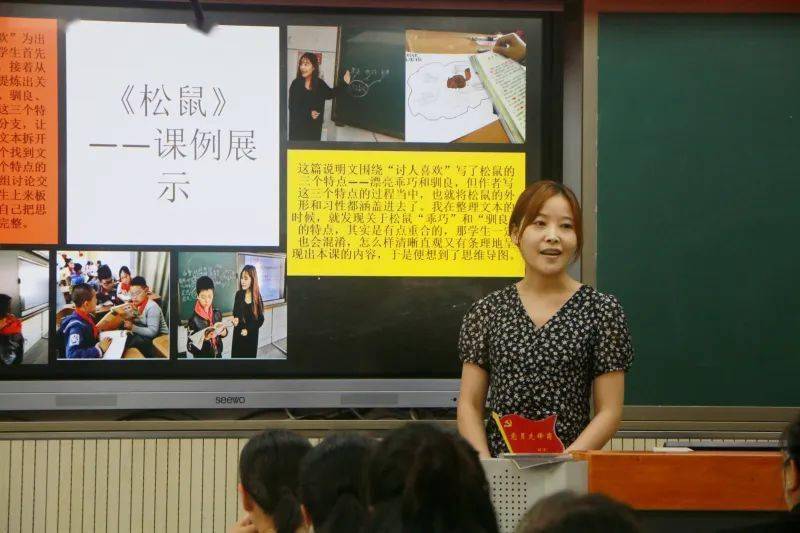 欢”为出
学生首先
，接着从
提炼出关
、驯良、
这三个特
分支，让
文本拆开
个找到文
个特点的
组讨论交
生上来板
自己把思
完整。
《松鼠》
——课例展
示
这篇说明文围绕“讨人喜欢”写了松鼠的
三个特点——漂亮乖巧和驯良，但作者写
这三个特点的过程当中，也就将松鼠的外
形和习性都涵盖进去了。我在整理文本的
时候，就发现关于松鼠“乖巧”和“驯良
的特点，其实是有点重合的，那学生一
也会混淆，怎么样清晰直观又有条理地呈
现出本课的内容，于是便想到了思维导图。
seewo
党员先锋岗